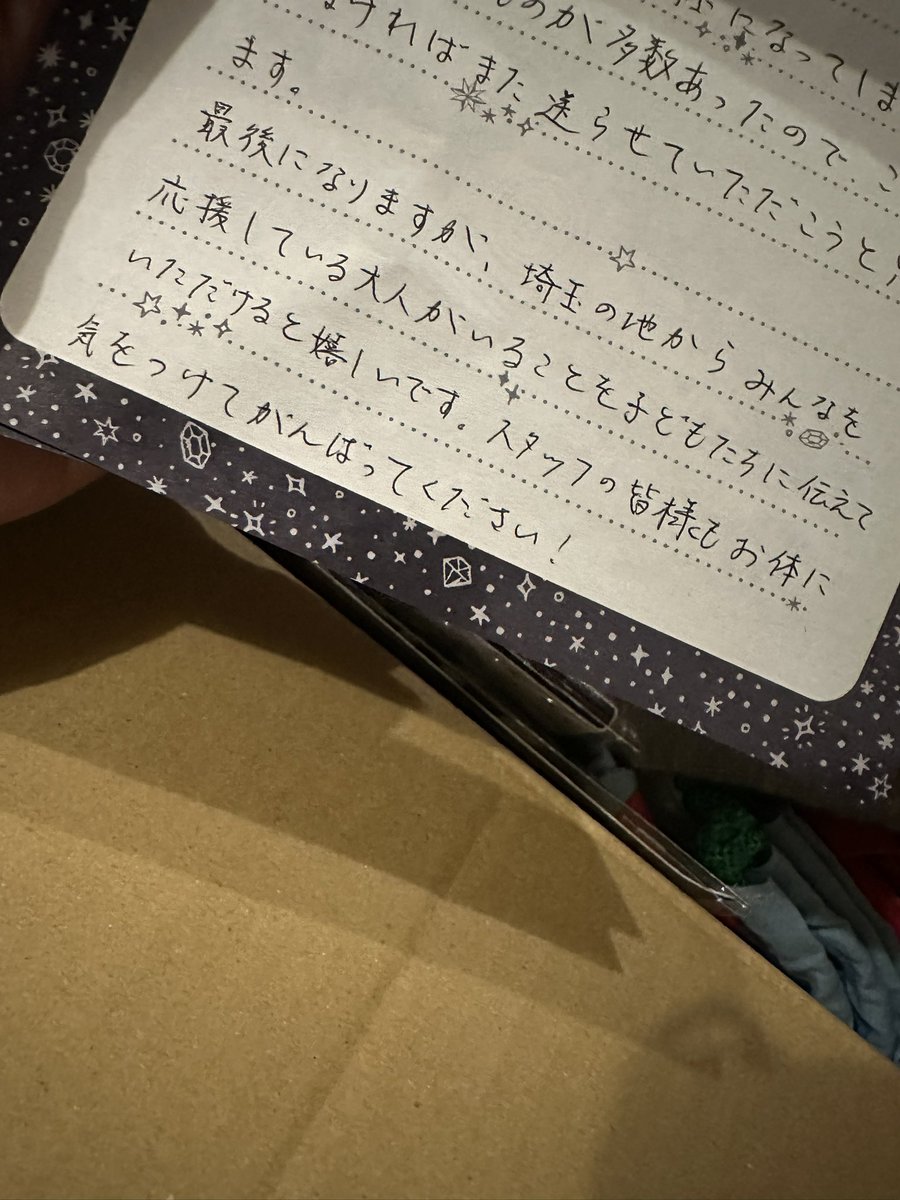 になってしま
のが多数あったので、こ
ければまた送らせていただこうと
ます。
最後になりますが、埼玉の地からみんなを
応援している大人がいることを子どもたちに伝えて
いただけると嬉しいです。スタッフの皆様もお体に
気をつけてがんばってください!